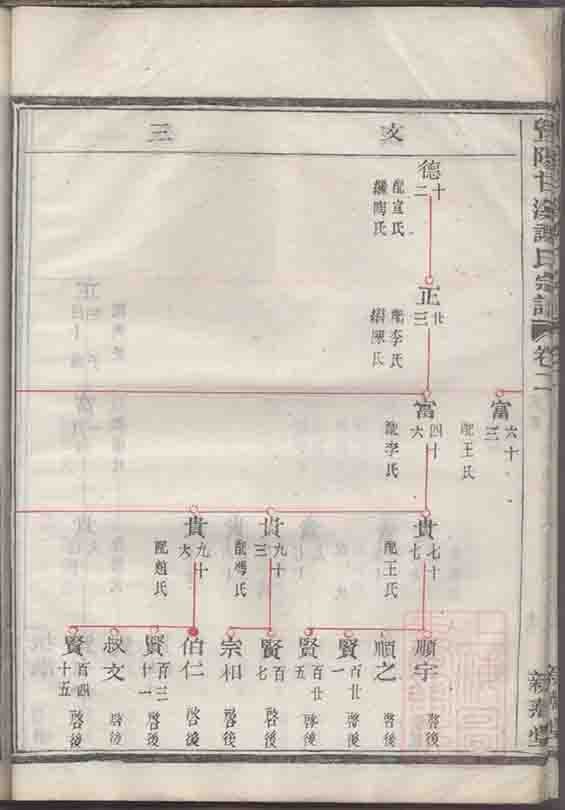 宗譜
卷二
文 三
德十二
配宣氏
繼陶氏
正廿三
配李氏
繼陳氏
富六十三
配王氏
富四十六
配李氏
貴七十七
配王氏
貴九十三
配馮氏
貴九十六
配趙氏
順宇
啓後
順之
啓後
賢百廿一
啓後
賢百廿五
啓後
賢百七
啓後
宗相
啓後
伯仁
啓後
賢百三十一
啓後
叔文
啓後
賢百四十五
啓後